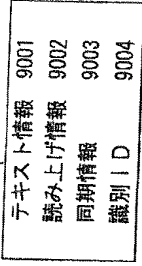 テキスト情報 9001
読み上げ情報 9002
同期情報 9003
識別ID 9004